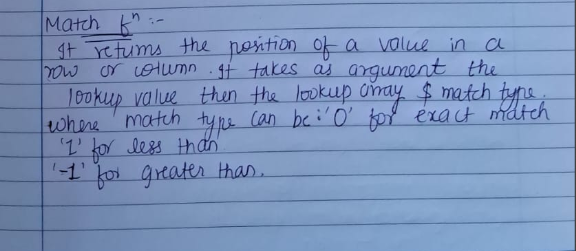 Match fⁿ :-
It returns the position of a value in a
row or column. It takes as argument the
lookup value then the lookup array & match type.
where match type can be :'0' for exact match
'1' for less than
'-1' for greater than.